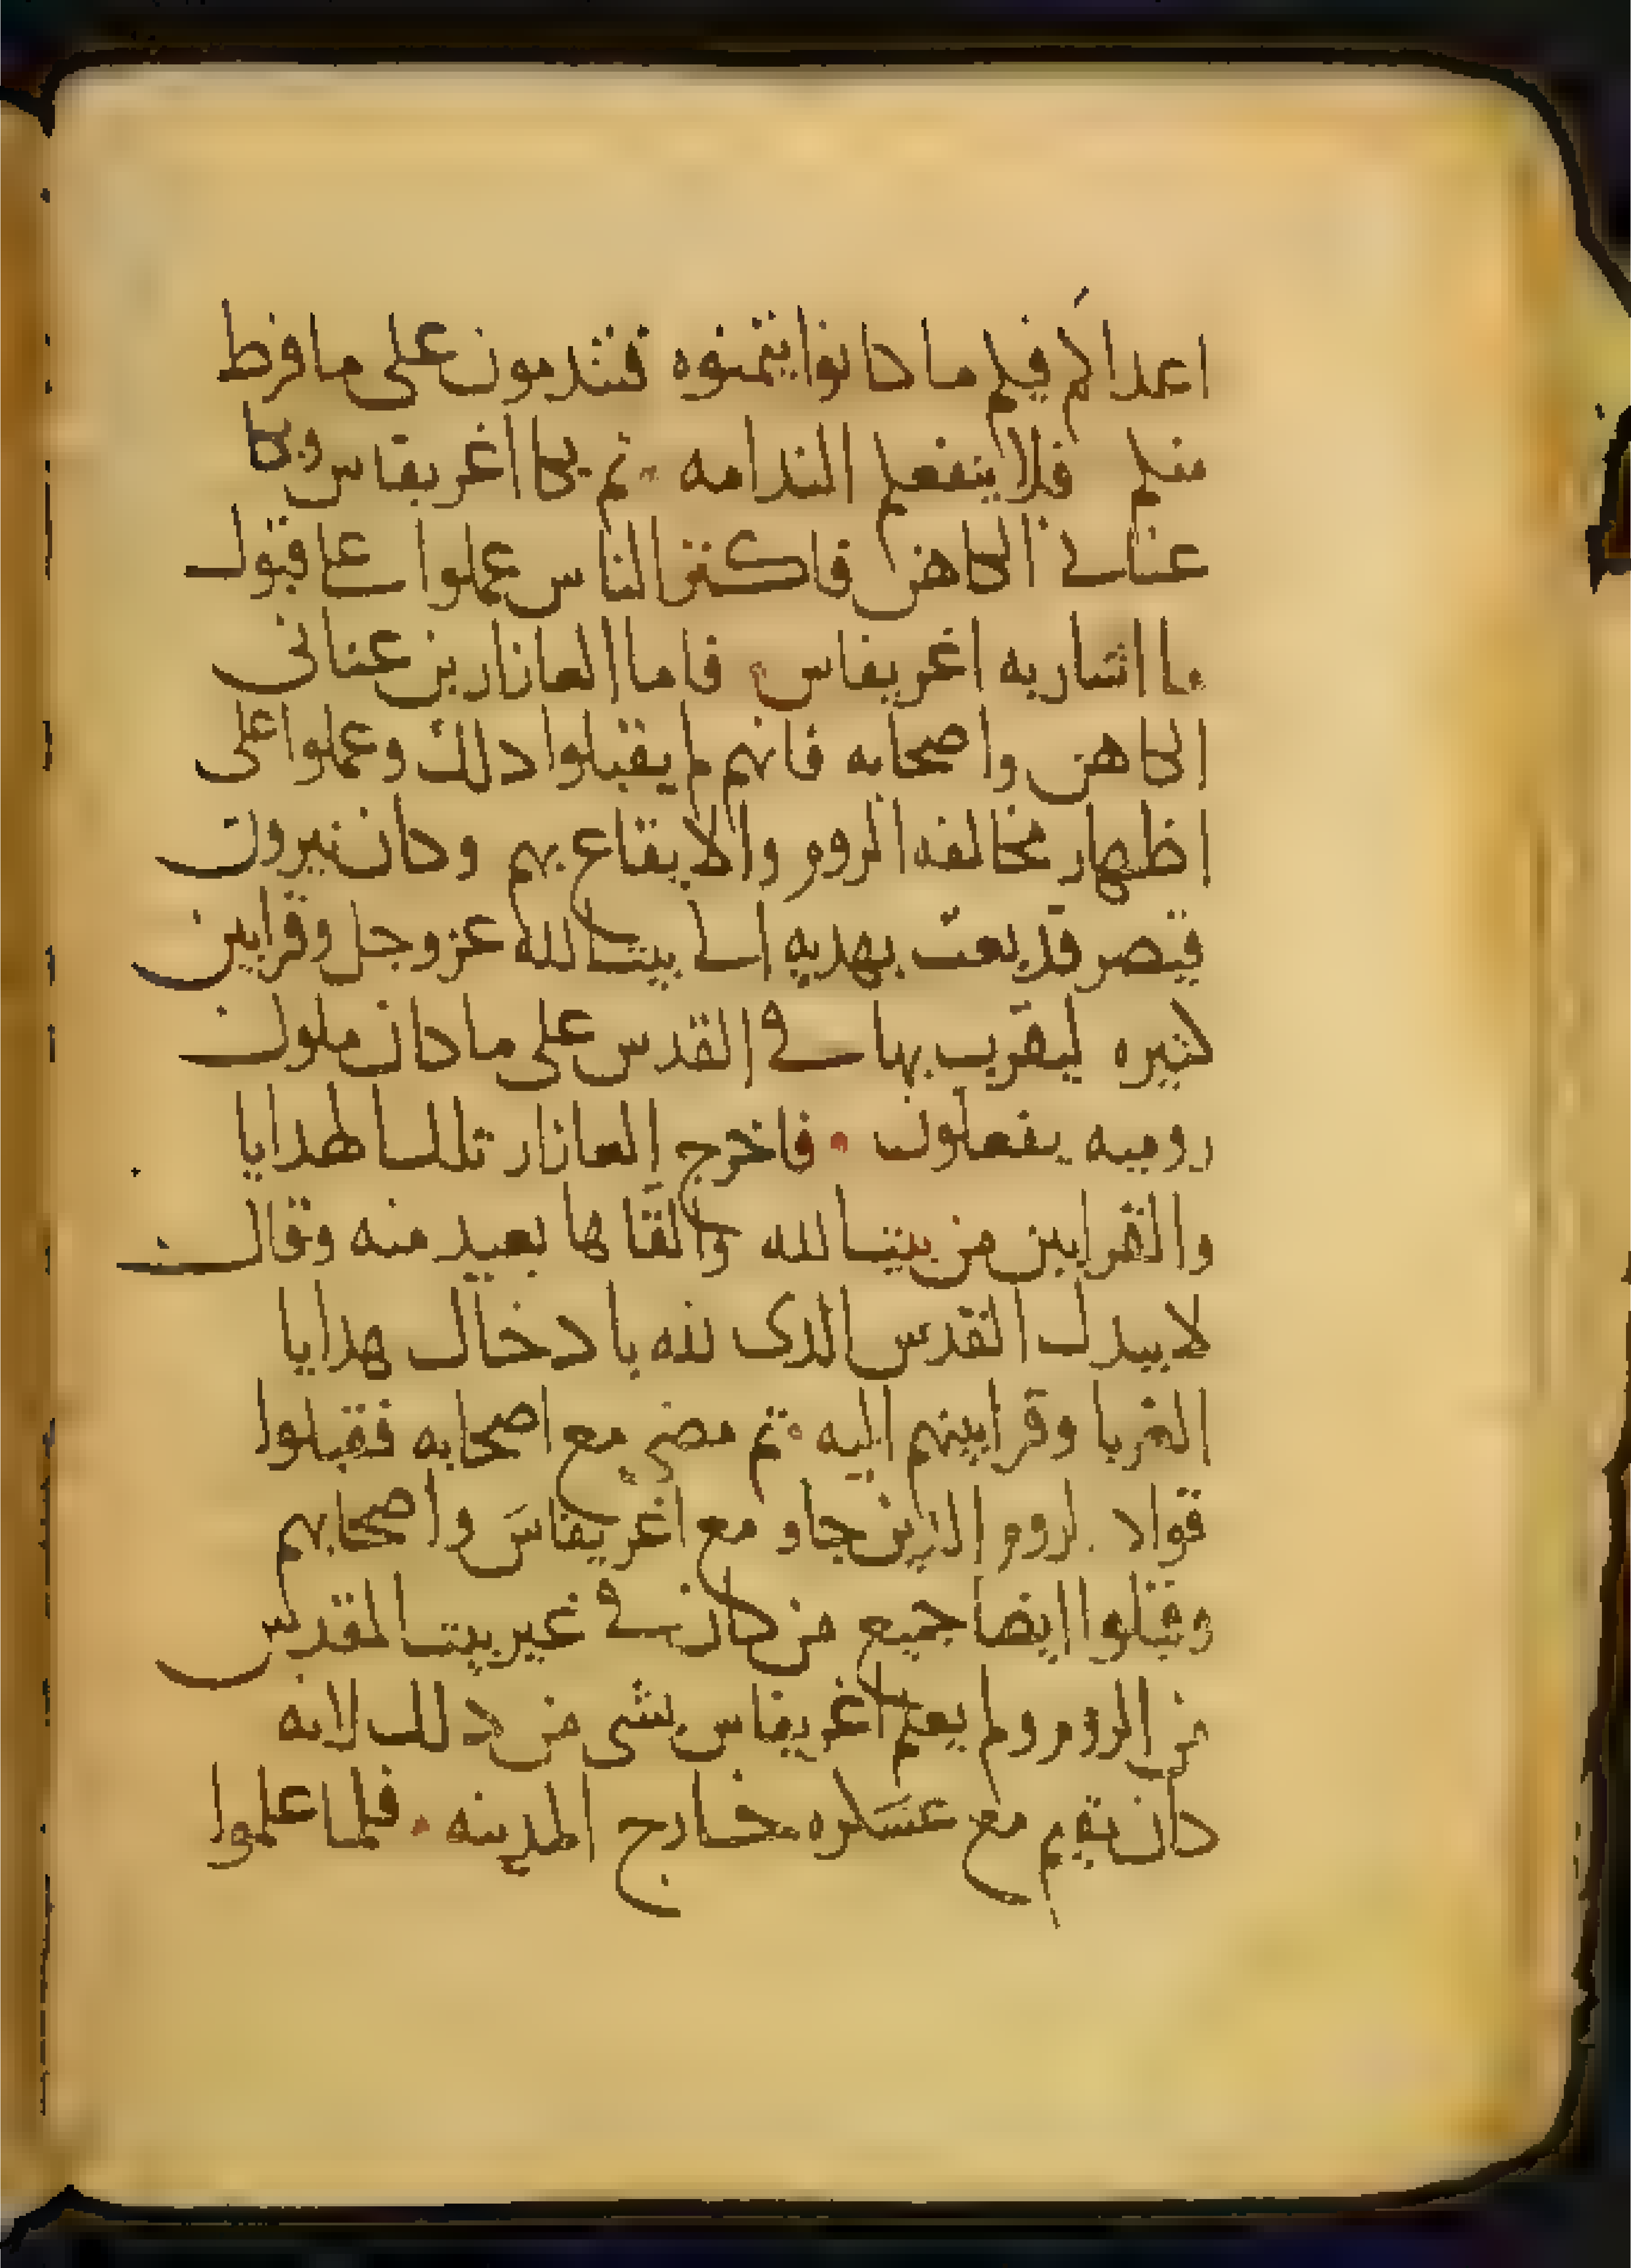 اعداكم فيكم ما كانوا يتمنوه فتندمون على ما فرط
منكم فلا ينفعكم الندامه ثم بكا اغريقاس وبكا
عناني الكاهن فاكثر الناس عملوا على قبول
ما اشار به اغريفاس فاما العازار بن عناني
الكاهن واصحابه فانهم لم يقبلوا دلك وعملوا على
اظهار مخالفه الروم والايقاع بهم وكان نيرون
قيصر قد بعث بهديه الى بيت الله عز وجل وقرابين
كثيره ليقرب بها في القدس على ما كان ملوك
روميه يفعلون فاخرج العازار تلك الهدايا
والقرابين من بيت الله والقاها بعيد منه وقال
لا يبدل القدس الدى لله بادخال هدايا
الغربا وقرابينهم اليه ثم مضى مع اصحابه فقبلوا
قواد الروم الذين جاو مع اغريفاس واصحابهم
وقتلوا ايضا جميع من كان في غير بيت المقدس
من الروم ولم يعلم اغريفاس بشى من دلك لانه
كان نقيم مع عسكره خارج المدينه فلما علموا